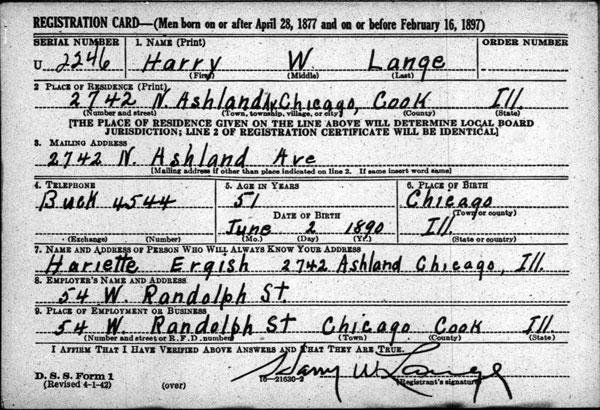 REGISTRATION CARD—(Men born on or after April 28, 1877 and on or before February 16, 1897)
SERIAL NUMBER 1. NAME (Print) ORDER NUMBER
U 2246 Harry W. Lange
(First) (Middle) (Last)
2 PLACE OF RESIDENCE (Print)
2742 N. Ashland Av Chicago, Cook Ill.
(Number and street) (Town, township, village, or city) (County) (State)
[THE PLACE OF RESIDENCE GIVEN ON THE LINE ABOVE WILL DETERMINE LOCAL BOARD
JURISDICTION; LINE 2 OF REGISTRATION CERTIFICATE WILL BE IDENTICAL]
3. MAILING ADDRESS
2742 N. Ashland Ave
[Mailing address if other than place indicated on line 2. If same insert word same]
4. TELEPHONE 5. AGE IN YEARS 6. PLACE OF BIRTH
Buck 4544 51 Chicago
(Town or county)
DATE OF BIRTH
June 2 1890 Ill.
(Exchange) (Number) (Mo.) (Day) (Yr.) (State or country)
7. NAME AND ADDRESS OF PERSON WHO WILL ALWAYS KNOW YOUR ADDRESS
Hariette Ergish 2742 Ashland Chicago, Ill.
8. EMPLOYER'S NAME AND ADDRESS
54 W. Randolph St.
9. PLACE OF EMPLOYMENT OR BUSINESS
54 W. Randolph St Chicago Cook Ill.
(Number and street or R. F. D. number) (Town) (County) (State)
I AFFIRM THAT I HAVE VERIFIED ABOVE ANSWERS AND THAT THEY ARE TRUE.
Harry W. Lange
D. S. S. Form 1
(Revised 4-1-42) (over) 16—21630-2 (Registrant's signature)